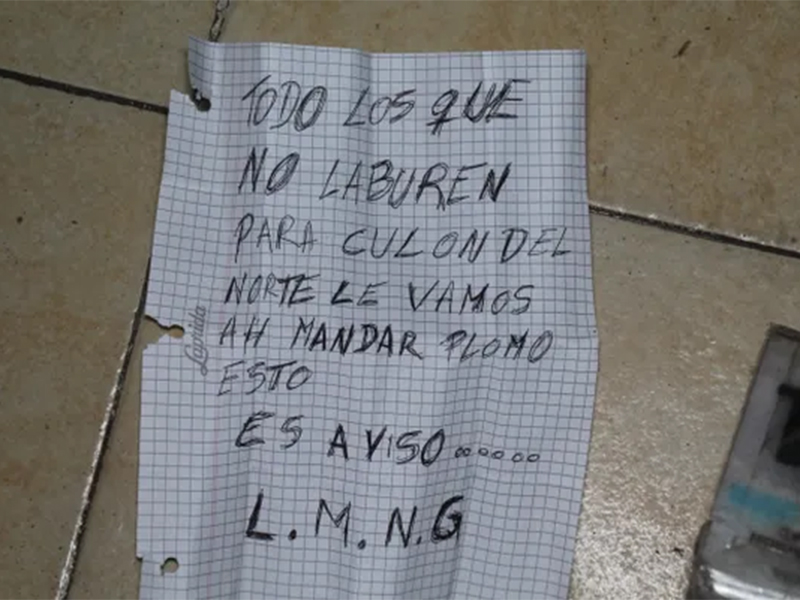 TODO LOS QUE
NO LABUREN
PARA CULON DEL
NORTE LE VAMOS
AH MANDAR PLOMO
ESTO
ES AVISO......
L.M.N.G